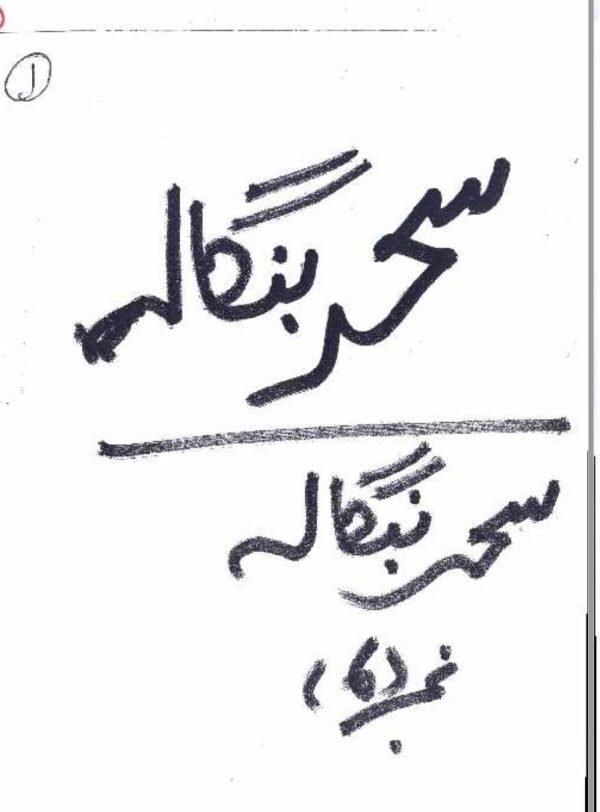 ۱
سحر بنگالہ
سحر بنگالہ
نمبر (۶)